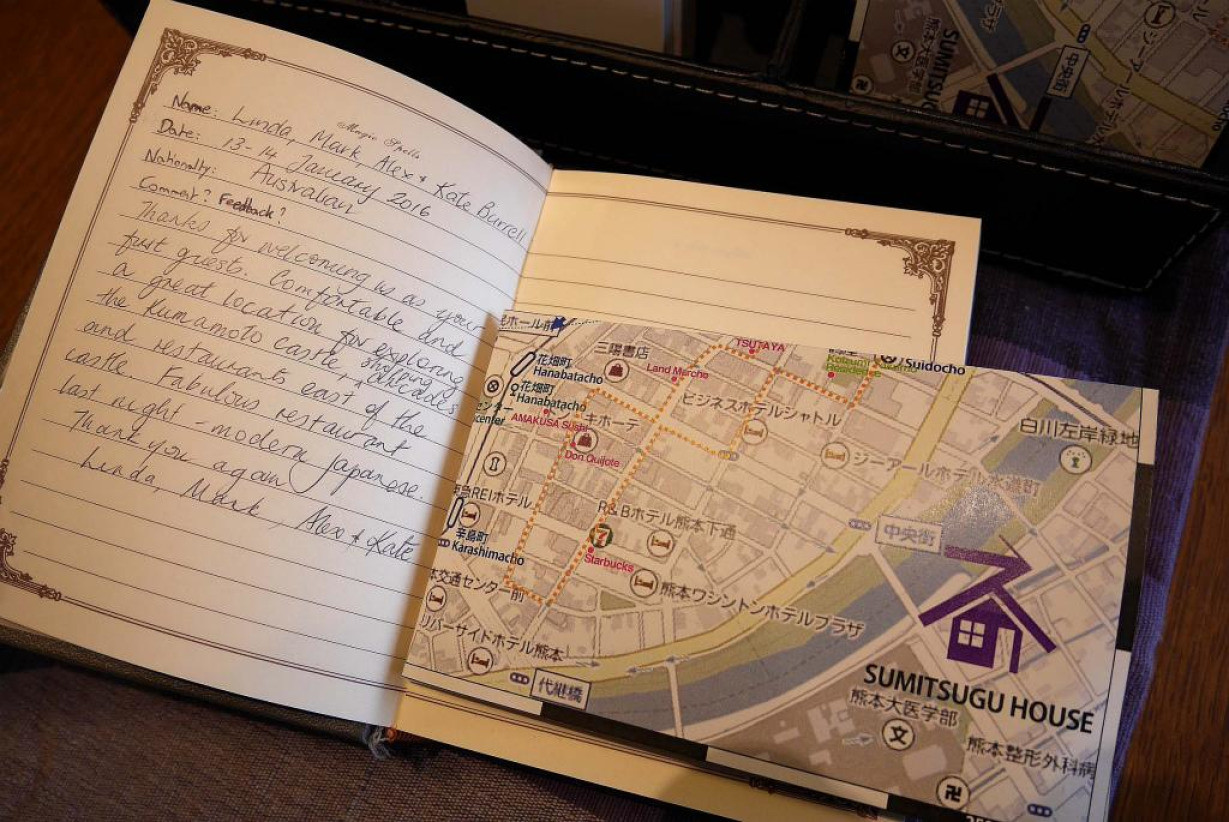 Magic Spells
Name: Linda, Mark, Alex + Kate Burrell
Date: 13-14 January 2016
Nationality: Australian
Comment? Feedback?
Thanks for welcoming us as your
first guests. Comfortable and
a great location for exploring
the Kumamoto castle, shopping arcades
and restaurants east of the
castle. Fabulous restaurant
last night - modern Japanese.
Thank you again
Linda, Mark, Alex + Kate
花畑町
Hanabatacho
花畑町
Hanabatacho
センター
center
三陽書店
Land Marche
TSUTAYA
Suidocho
AMAKUSA Sushi
ドンキホーテ
Don Quijote
ビジネスホテルシャトル
ジーアールホテル水道町
白川左岸緑地
REIホテル
R&Bホテル熊本下通
7
Starbucks
中央街
辛島町
Karashimacho
交通センター前
熊本ワシントンホテルプラザ
リバーサイドホテル熊本
代継橋
SUMITSUGU HOUSE
熊本大医学部
文
熊本整形外科病
卍
中央街
文